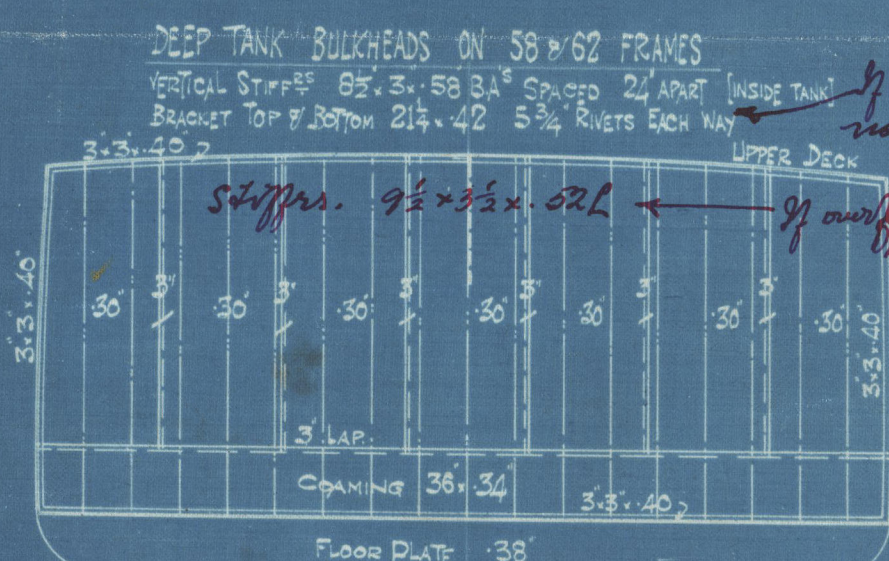 DEEP TANK BULKHEADS ON 58 & 62 FRAMES
VERTICAL STIFFRS 8½" × 3" × .58 B.A'S SPACED 24" APART [INSIDE TANK]
BRACKET TOP & BOTTOM 21¼" × .42 5 ¾" RIVETS EACH WAY
If
3" × 3" × .40"
UPPER DECK
Stiffrs. 9½ × 3½ × .52 L
If
3" × 3" × .40"
.30" 3" .30" 3" .30" 3" .30" 3" .30" 3" .30" 3" .30"
3" × 3" × .40"
3" LAP.
COAMING 36" × .34"
3" × 3" × .40
FLOOR PLATE .38"